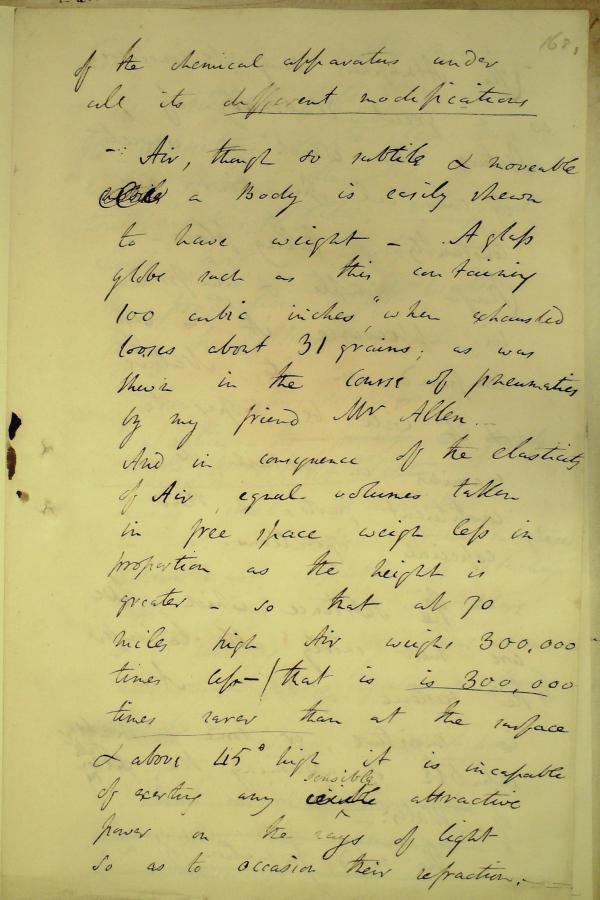 168.
of the chemical apparatus under
all its different modifications
- Air, though so subtile & moveable
a Body is easily shewn
to have weight - A glass
globe such as this containing
100 cubic inches, when exhausted
looses about 31 grains; as was
shewn in the Course of pneumatics
by my friend Mr Allen.
And in consequence of the elasticity
of Air equal volumes taken
in free space weigh less in
proportion as the height is
greater - so that at 70
miles high Air weighs 300,000
times less - (that is is 300,000
times rarer than at the surface
& above 45° high it is incapable
sensibly
of exerting any attractive
power on the rays of light
so as to occasion their refraction.